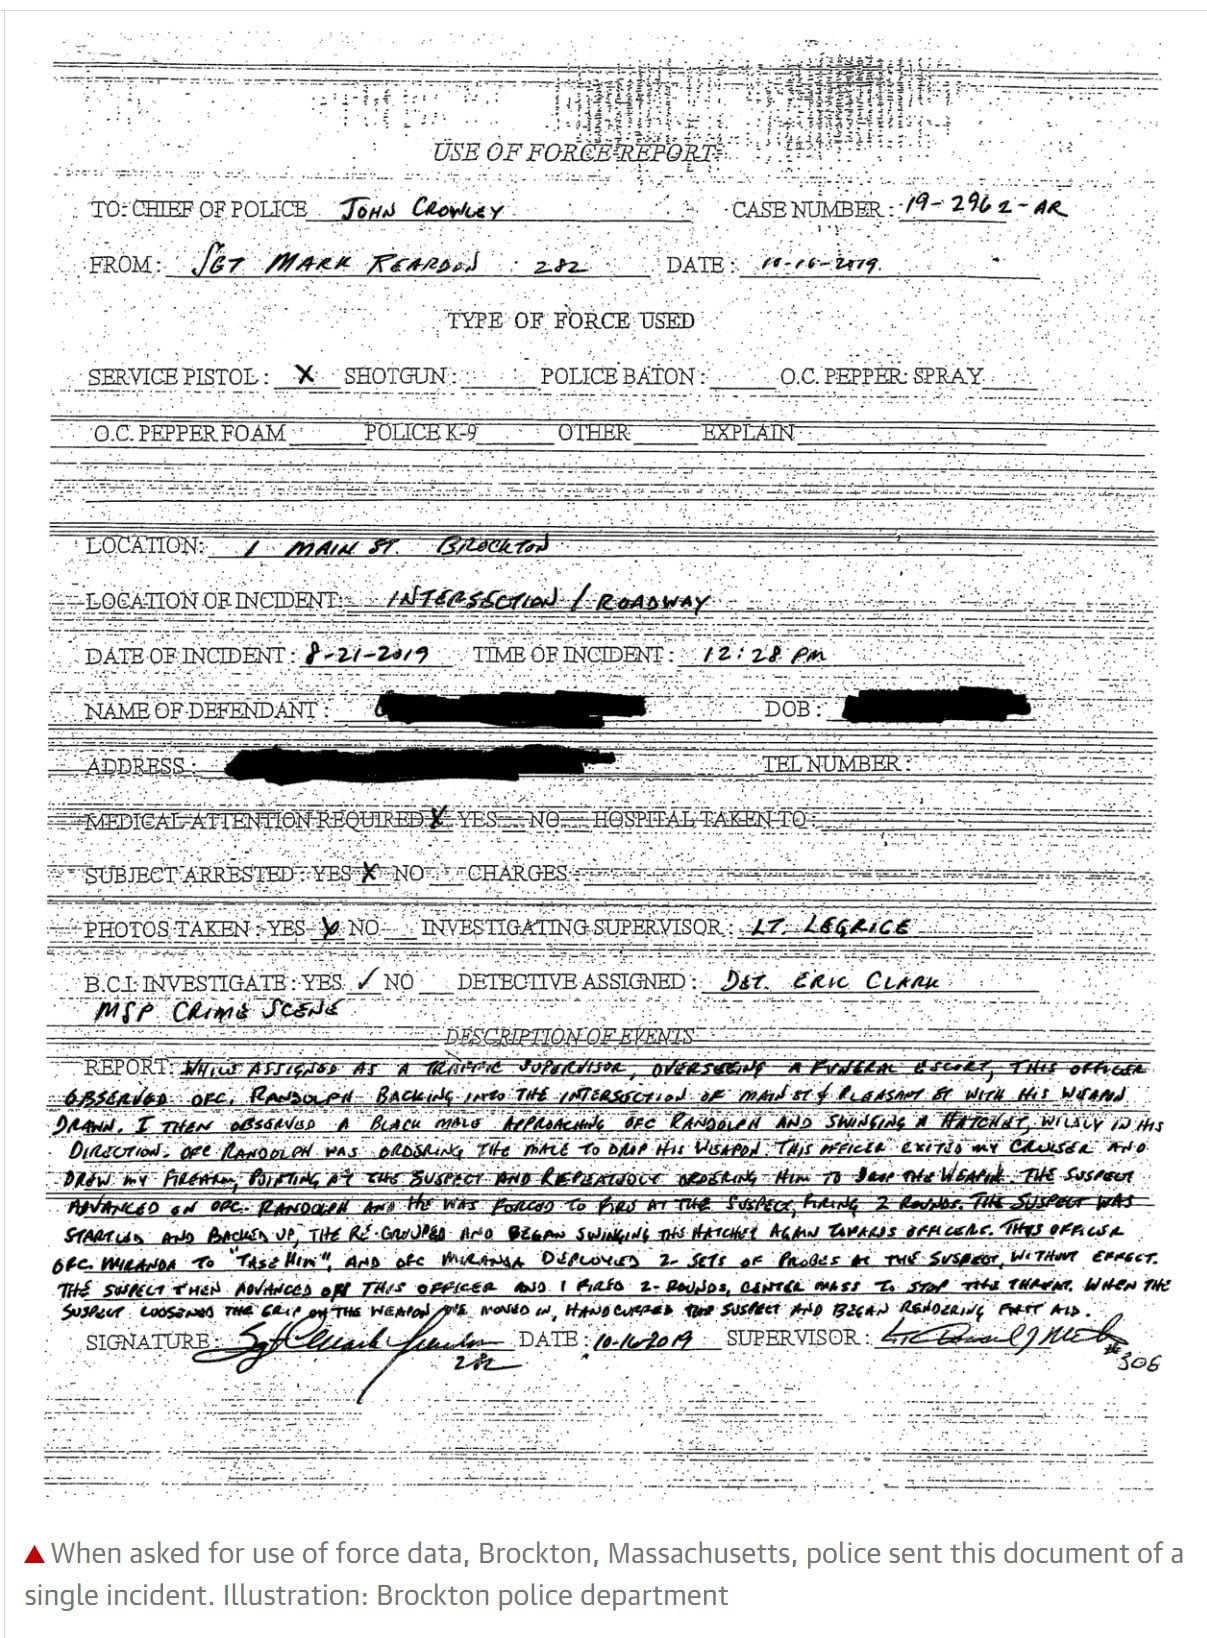 USE OF FORCE REPORT
TO: CHIEF OF POLICE JOHN CROWLEY CASE NUMBER: 19-2962-AR
FROM: SGT MARK REARDON 282 DATE: 10-16-2019
TYPE OF FORCE USED
SERVICE PISTOL: X SHOTGUN: POLICE BATON: O.C. PEPPER SPRAY
O.C. PEPPER FOAM POLICE K-9 OTHER EXPLAIN
LOCATION: 1 MAIN ST. BROCKTON
LOCATION OF INCIDENT: INTERSECTION / ROADWAY
DATE OF INCIDENT: 8-21-2019 TIME OF INCIDENT: 12:28 PM
NAME OF DEFENDANT: DOB:
ADDRESS: TEL NUMBER:
MEDICAL ATTENTION REQUIRED X YES NO HOSPITAL TAKEN TO:
SUBJECT ARRESTED: YES X NO CHARGES:
PHOTOS TAKEN: YES X NO INVESTIGATING SUPERVISOR: LT. LEGRICE
B.C.I. INVESTIGATE: YES ✓ NO DETECTIVE ASSIGNED: DET. ERIC CLARK
MSP CRIME SCENE
DESCRIPTION OF EVENTS
REPORT: WHILE ASSIGNED AS A TRAFFIC SUPERVISOR, OVERSEEING A FUNERAL ESCORT, THIS OFFICER
OBSERVED OFC. RANDOLPH BACKING INTO THE INTERSECTION OF MAIN ST & PLEASANT ST WITH HIS WEAPON
DRAWN. I THEN OBSERVED A BLACK MALE APPROACHING OFC RANDOLPH AND SWINGING A HATCHET, WILDLY IN HIS
DIRECTION. OFC RANDOLPH WAS ORDERING THE MALE TO DROP HIS WEAPON. THIS OFFICER EXITED MY CRUISER AND
DREW MY FIREARM, POINTING AT THE SUSPECT AND REPEATEDLY ORDERING HIM TO DROP THE WEAPON. THE SUSPECT
ADVANCED ON OFC. RANDOLPH AND HE WAS FORCED TO FIRE AT THE SUSPECT, FIRING 2 ROUNDS. THE SUSPECT WAS
STARTLED AND BACKED UP, THE RE-GROUPED AND BEGAN SWINGING THE HATCHET AGAIN TOWARDS OFFICERS. THIS OFFICER
OFC. MIRANDA TO "TASE HIM", AND OFC MIRANDA DEPLOYED 2 SETS OF PROBES AT THE SUSPECT, WITHOUT EFFECT.
THE SUSPECT THEN ADVANCED ON THIS OFFICER AND I FIRED 2-ROUNDS, CENTER MASS TO STOP THE THREAT. WHEN THE
SUSPECT LOOSENED THE GRIP ON THE WEAPON WE MOVED IN, HANDCUFFED THE SUSPECT AND BEGAN RENDERING FIRST AID.
SIGNATURE: DATE: 10-16-2019 SUPERVISOR:
282 #306
▲ When asked for use of force data, Brockton, Massachusetts, police sent this document of a
single incident. Illustration: Brockton police department